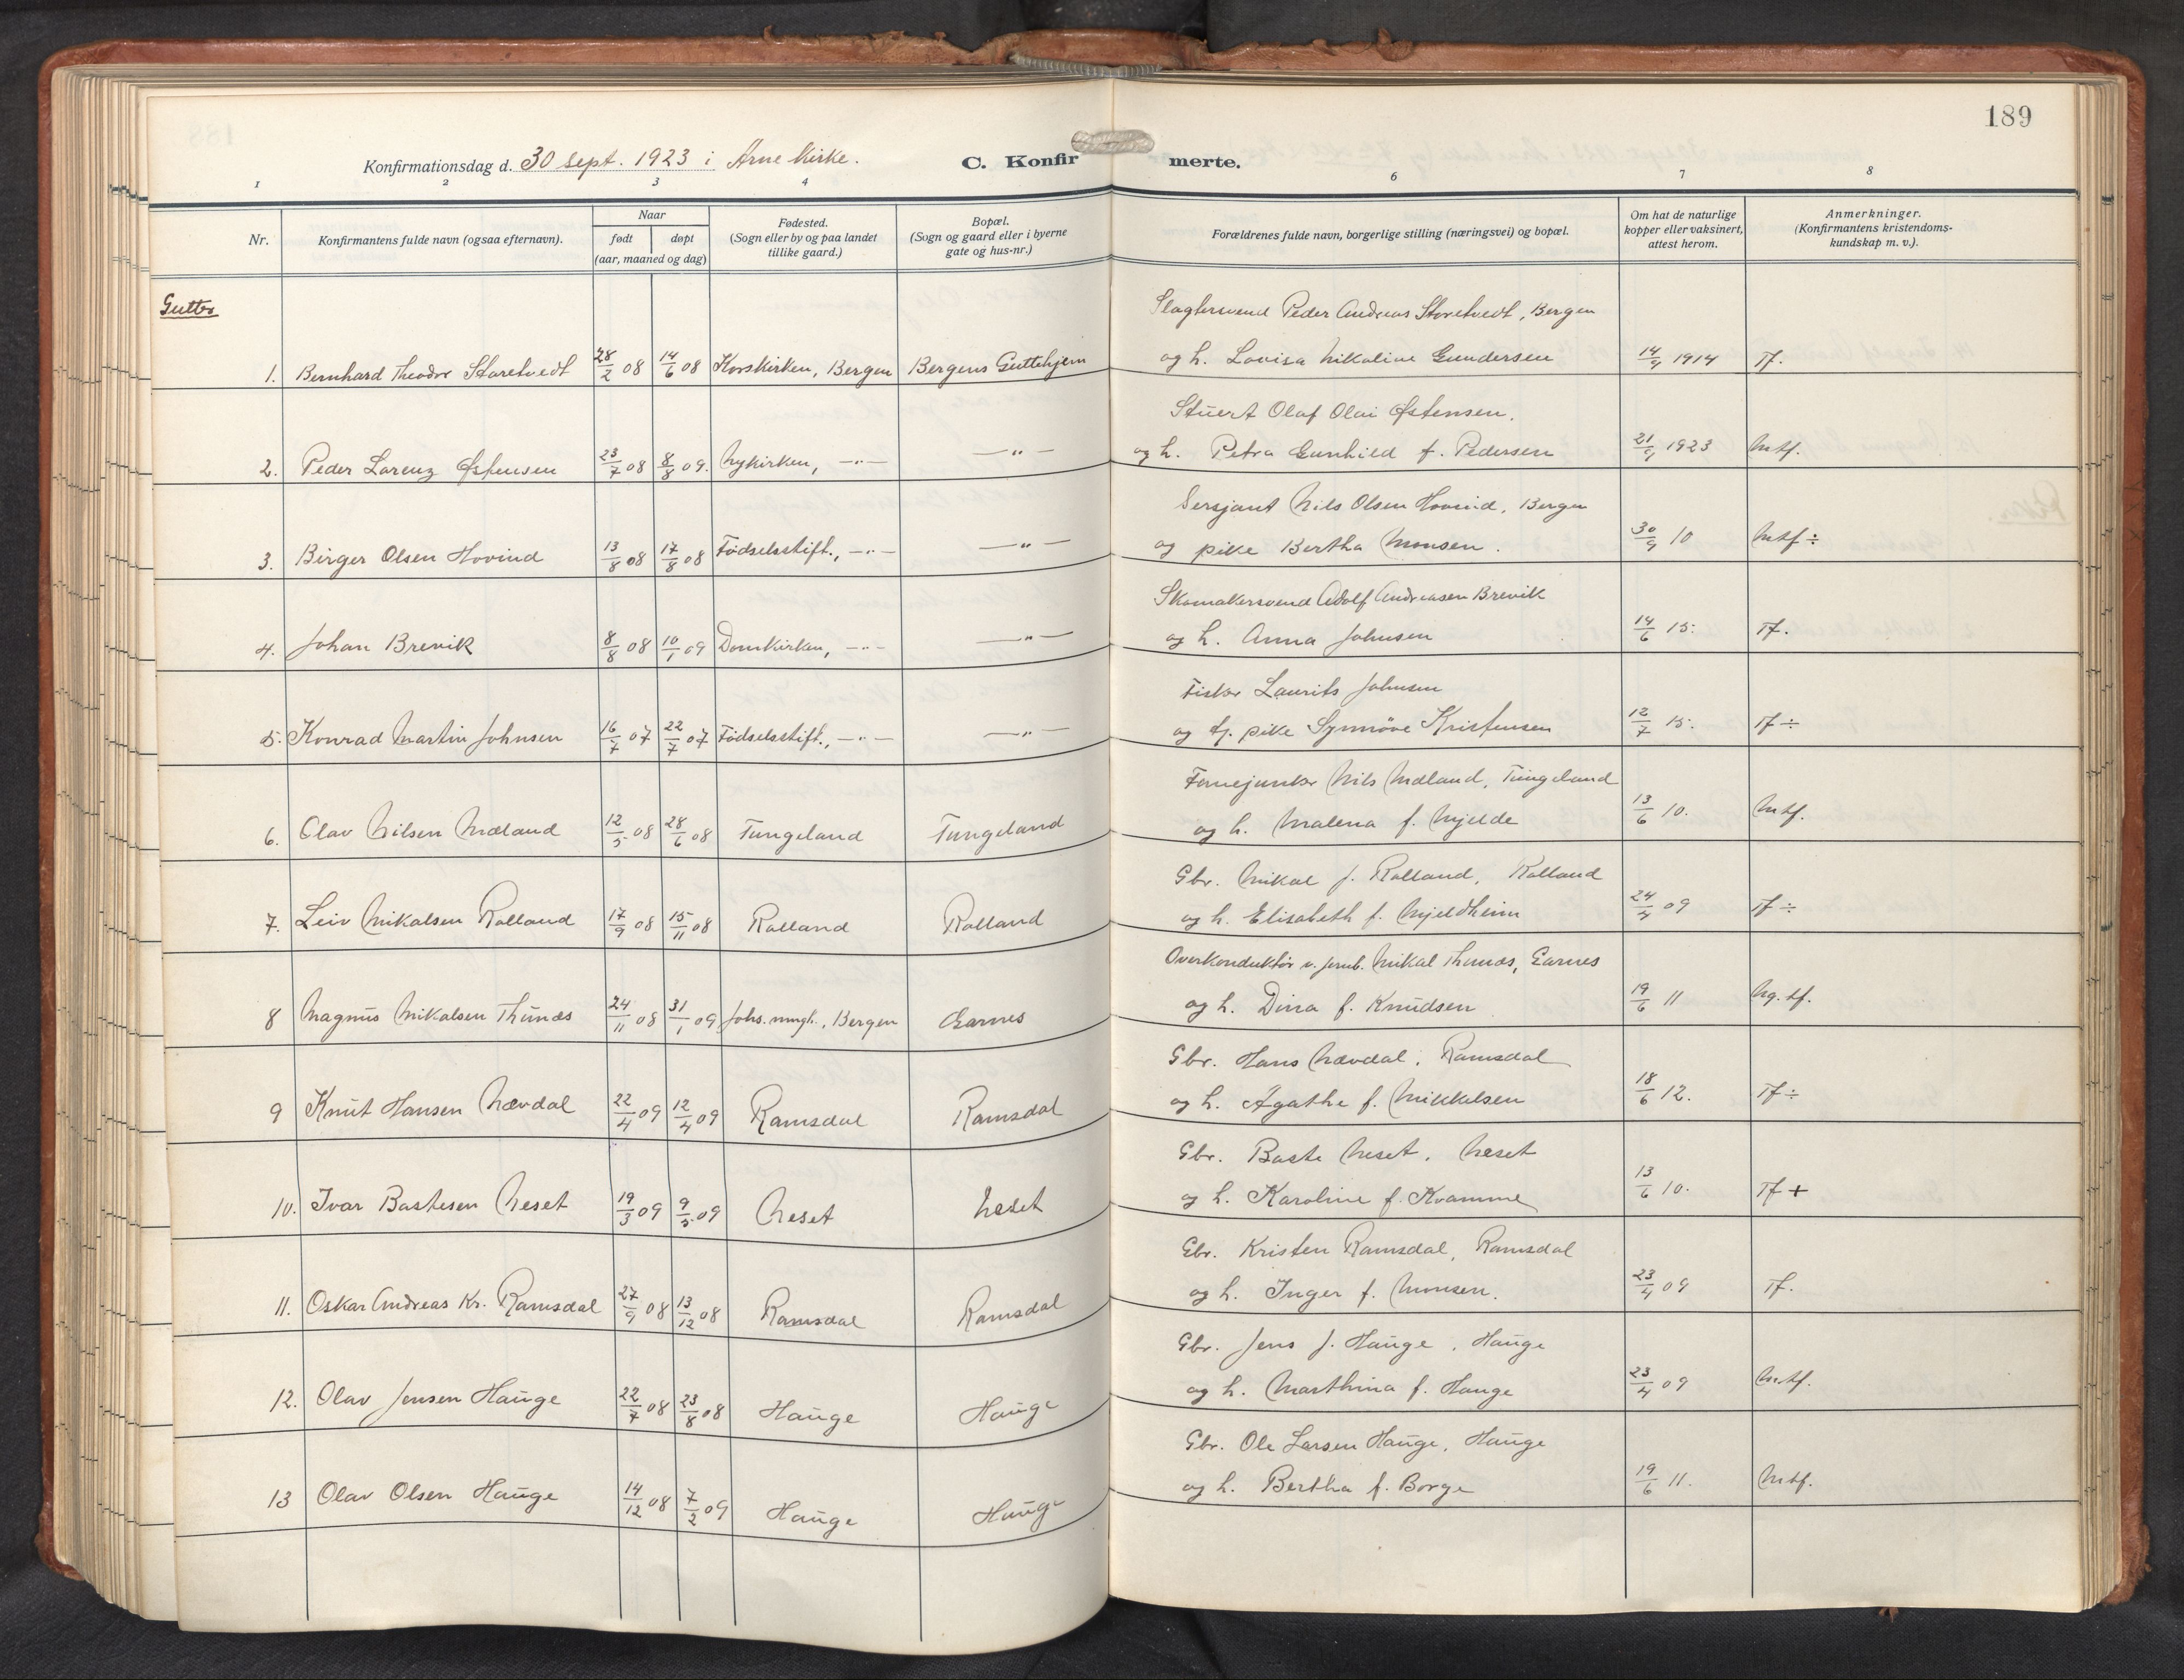 189
Konfirmationsdag d. 30 sept. 1923 i Arne kirke.
C. Konfirmerte.
1 2 3 4 6 7 8
Nr.
Konfirmantens fulde navn (ogsaa efternavn).
Naar
født
døpt
(aar, maaned og dag)
Fødested.
(Sogn eller by og paa landet
tillike gaard.)
Bopæl.
(Sogn og gaard eller i byerne
gate og hus-nr.)
Forældrenes fulde navn, borgerlige stilling (næringsvei) og bopæl.
Om hat de naturlige
kopper eller vaksinert,
attest herom.
Anmerkninger.
(Konfirmantens kristendoms-
kundskap m. v.).
Gutter
Slagtersvend Peder Andreas Storetvedt, Bergen
1. Bernhard Theodor Storetvedt 28/2 08 14/6 08 Korskirken, Bergen Bergens Guttehjem og h. Lovisa Nikoline Gundersen 14/9 1914 Tf.
Stuert Olaf Olai Østensen.
2. Peder Lorenz Østensen 23/7 08 8/8 09. Nykirken, —"— —"— og h. Petra Gunhild f. Pedersen 21/9 1923 Mtf.
Sersjant Nils Olsen Hovind, Bergen
3. Birger Olsen Hovind 13/8 08 17/8 08 Fødselsstift., —"— —"— og pike Bertha Monsen. 30/9 10 Mtf ÷
Skomakersvend Adolf Andreasen Brevik
4. Johan Brevik 8/8 08 10/1 09 Domkirken, —"— —"— og h. Anna Johnsen 14/6 15. Tf.
Fisker Laurits Johnsen
5. Konrad Martin Johnsen 16/7 07 22/7 07 Fødselsstift., —"— —"— og tj. pike Synnøve Kristensen 12/7 15. Tf ÷
Fanejunker Nils Mæland, Tungeland
6. Olav Nilsen Mæland 12/5 08 28/6 08 Tungeland Tungeland og h. Malena f. Mjelde 13/6 10. Mtf.
Gbr. Mikal J. Rolland, Rolland
7. Leiv Mikalsen Rolland 17/9 08 15/11 08 Rolland Rolland og h. Elisabeth f. Mjeldheim 24/4 09 Tf ÷
Overkonduktør v. jernb. Mikal Thunæs, Garnes
8 Magnus Mikalsen Thunæs 24/11 08 31/1 09 Johs. mngh., Bergen Garnes og h. Dina f. Knudsen 19/6 11 Mg. tf.
Gbr. Hans Nævdal, Ramsdal
9 Knut Hansen Nævdal 22/4 09 12/4 09 Ramsdal Ramsdal og h. Agathe f. Mikkelsen 18/6 12. Tf ÷
Gbr. Baste Neset, Neset
10. Ivar Bastesen Neset 19/3 09 9/5 09 Neset Neset og h. Karoline f. Kvamme 13/6 10. Tf +
Gbr. Kristen Ramsdal, Ramsdal
11. Oskar Andreas Kr. Ramsdal 27/9 08 13/12 08 Ramsdal Ramsdal og h. Inger f. Monsen. 23/4 09 Tf.
Gbr. Jens J. Hauge, Hauge
12. Olav Jensen Hauge 22/7 08 23/8 08 Hauge Hauge og h. Marthina f. Hauge 23/4 09 Mtf.
Gbr. Ole Larsen Hauge, Hauge
13 Olav Olsen Hauge 14/12 08 7/2 09 Hauge Hauge og h. Bertha f. Borge 19/6 11. Mtf.